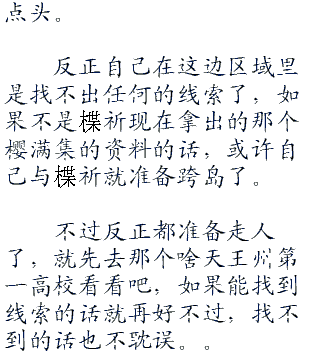 点头。
反正自己在这边区域里
是找不出任何的线索了，如
果不是楪祈现在拿出的那个
樱满集的资料的话，或许自
己与楪祈就准备跨岛了。
不过反正都准备走人
了，就先去那个啥天王州第
一高校看看吧，如果能找到
线索的话就再好不过，找不
到的话也不耽误。。